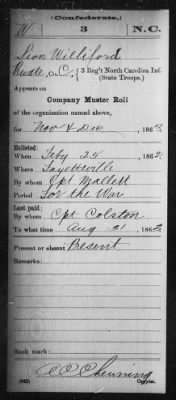 (Confederate.)
W 3 N.C.
Sion Williford
Pvt, Co. C, 3 Reg't North Carolina Inf.
(State Troops.)
Appears on
Company Muster Roll
of the organization named above,
for Nov & Dec, 1862.
Enlisted:
When Feby 25, 1862.
Where Fayetteville
By whom Cpt Mallett
Period For the War
Last paid:
By whom Cpt Colston
To what time Aug 31, 1862.
Present or absent Present
Remarks:
Book mark:
(642) Copyist.